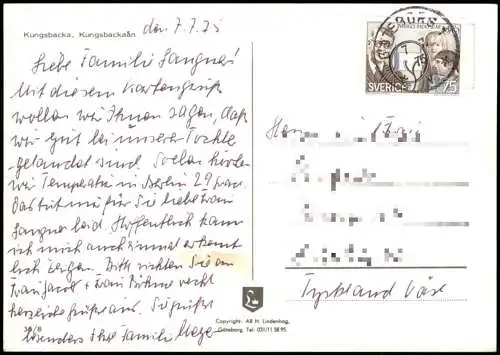 Kungsbacka, Kungsbackaån
den 7.7.75
Liebe Familie Langner!
Mit diesem Kartengruß
wollen wir Ihnen sagen, daß
wir gut bei unserer Tochter
gelandet sind. Soeben hörten
wir Temperatur in Berlin 29 Grad.
Das tut mir für Sie liebe Frau
Langner leid. Hoffentlich kann
ich mich auch einmal erkennt-
lich zeigen. Bitte richten Sie an
Frau Jacob + Frau recht
herzliche Grüße aus. Sie grüßt
besonders Ihre Familie Meyer
36/8
Copyright: AB H. Lindenhag,
Göteborg, Tel. 031/11 58 95
SVERIGE
75
Tyskland Väst